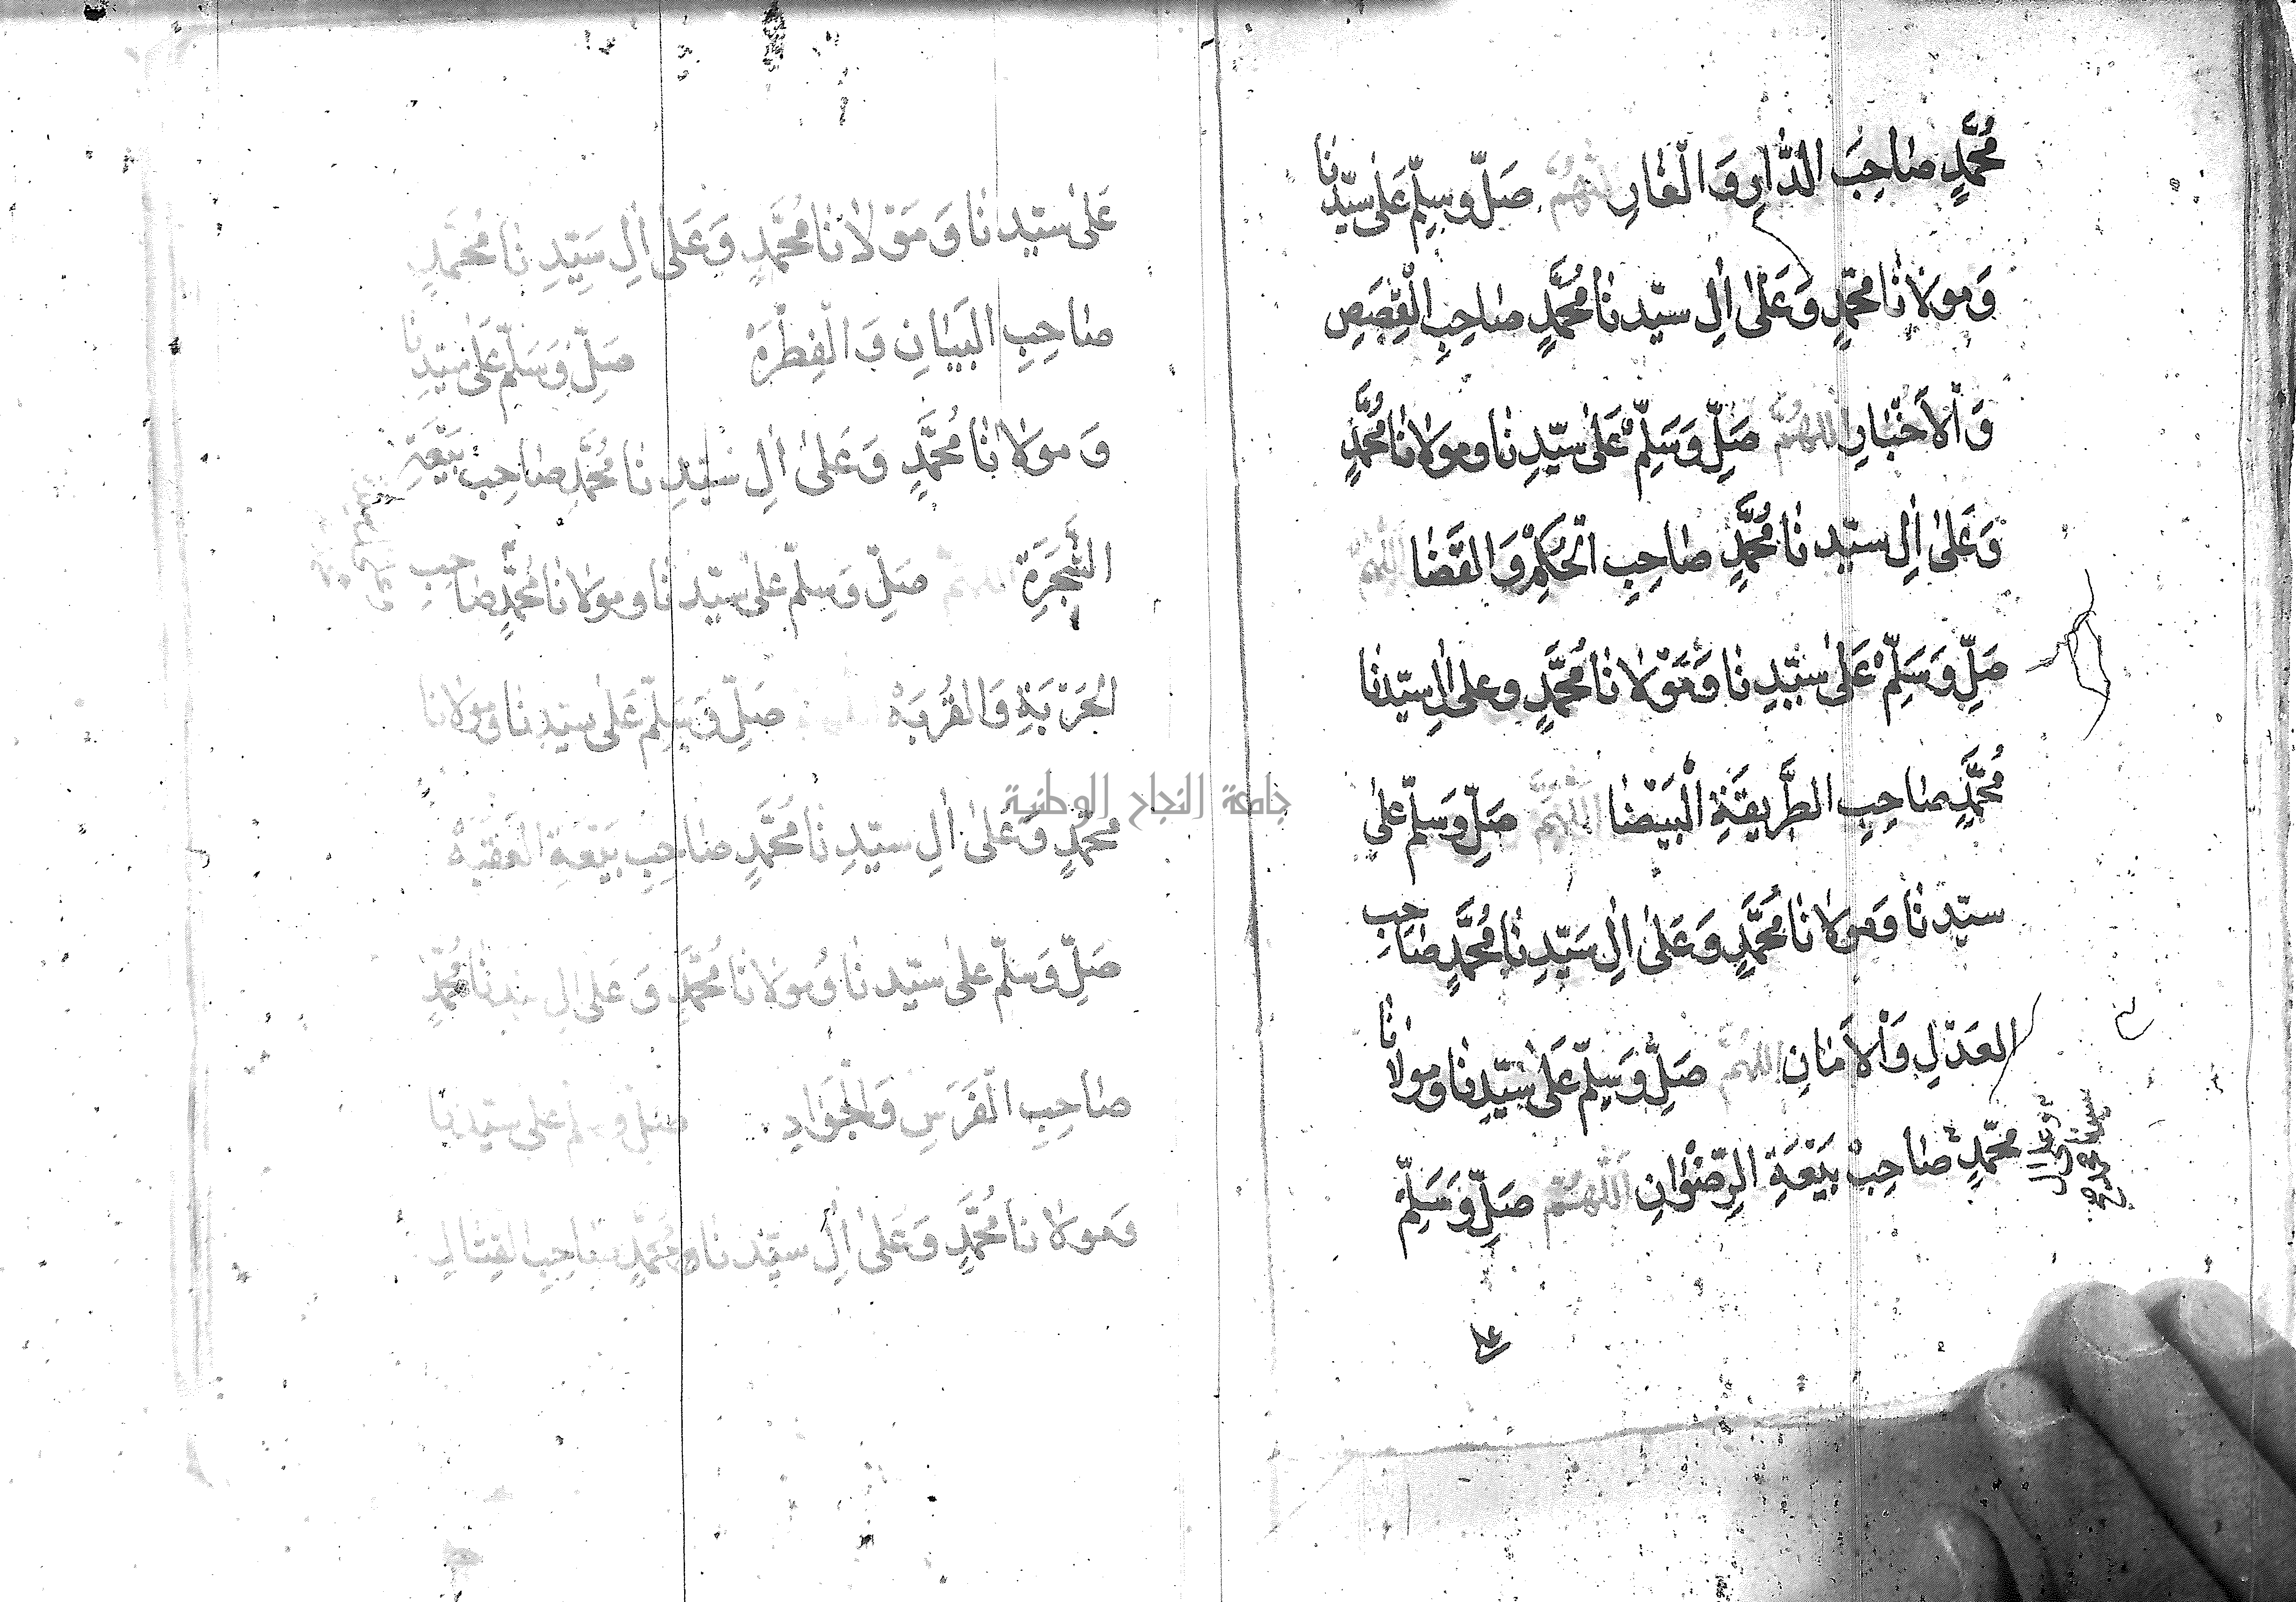 مُحَمَّدٍ صَاحِبِ الدَّارِ وَالْغَارِ اللّٰهُمَّ صَلِّ وَسَلِّمْ عَلَى سَيِّدِنَا
وَمَوْلَانَا مُحَمَّدٍ وَعَلَى اٰلِ سَيِّدِنَا مُحَمَّدٍ صَاحِبِ الْقَصَصِ
وَالْاَخْبَارِ اللّٰهُمَّ صَلِّ وَسَلِّمْ عَلَى سَيِّدِنَا وَمَوْلَانَا مُحَمَّدٍ
وَعَلَى اٰلِ سَيِّدِنَا مُحَمَّدٍ صَاحِبِ الْحُكْمِ وَالْقَضَا اللّٰهُمَّ
صَلِّ وَسَلِّمْ عَلَى سَيِّدِنَا وَمَوْلَانَا مُحَمَّدٍ وَعَلَى اٰلِ سَيِّدِنَا
مُحَمَّدٍ صَاحِبِ الطَّرِيقَةِ الْبَيْضَا اللّٰهُمَّ صَلِّ وَسَلِّمْ عَلَى
سَيِّدِنَا وَمَوْلَانَا مُحَمَّدٍ وَعَلَى اٰلِ سَيِّدِنَا مُحَمَّدٍ صَاحِبِ
الْعَدْلِ وَالْاَمَانِ اللّٰهُمَّ صَلِّ وَسَلِّمْ عَلَى سَيِّدِنَا وَمَوْلَانَا
مُحَمَّدٍ صَاحِبِ بَيْعَةِ الرِّضْوَانِ اللّٰهُمَّ صَلِّ وَسَلِّمْ
وعلى ال
سيدنا محمد صح
على
عَلَى سَيِّدِنَا وَمَوْلَانَا مُحَمَّدٍ وَعَلَى اٰلِ سَيِّدِنَا مُحَمَّدٍ
صَاحِبِ الْبَيَانِ وَالْفِطْرَهْ صَلِّ وَسَلِّمْ عَلَى سَيِّدِنَا
وَمَوْلَانَا مُحَمَّدٍ وَعَلَى اٰلِ سَيِّدِنَا مُحَمَّدٍ صَاحِبِ بَيْعَةِ
الشَّجَرَةِ صَلِّ وَسَلِّمْ عَلَى سَيِّدِنَا وَمَوْلَانَا مُحَمَّدٍ صَاحِبِ
الْحَرْبَةِ وَالْقُرْبَهْ صَلِّ وَسَلِّمْ عَلَى سَيِّدِنَا وَمَوْلَانَا
مُحَمَّدٍ وَعَلَى اٰلِ سَيِّدِنَا مُحَمَّدٍ صَاحِبِ بَيْعَةِ الْعَقَبَهْ
صَلِّ وَسَلِّمْ عَلَى سَيِّدِنَا وَمَوْلَانَا مُحَمَّدٍ وَعَلَى اٰلِ سَيِّدِنَا مُحَمَّدٍ
صَاحِبِ الْفَرَسِ وَالْجَوَادِ صَلِّ وَسَلِّمْ عَلَى سَيِّدِنَا
وَمَوْلَانَا مُحَمَّدٍ وَعَلَى اٰلِ سَيِّدِنَا مُحَمَّدٍ صَاحِبِ الْقِتَالِ
جامعة النجاح الوطنية